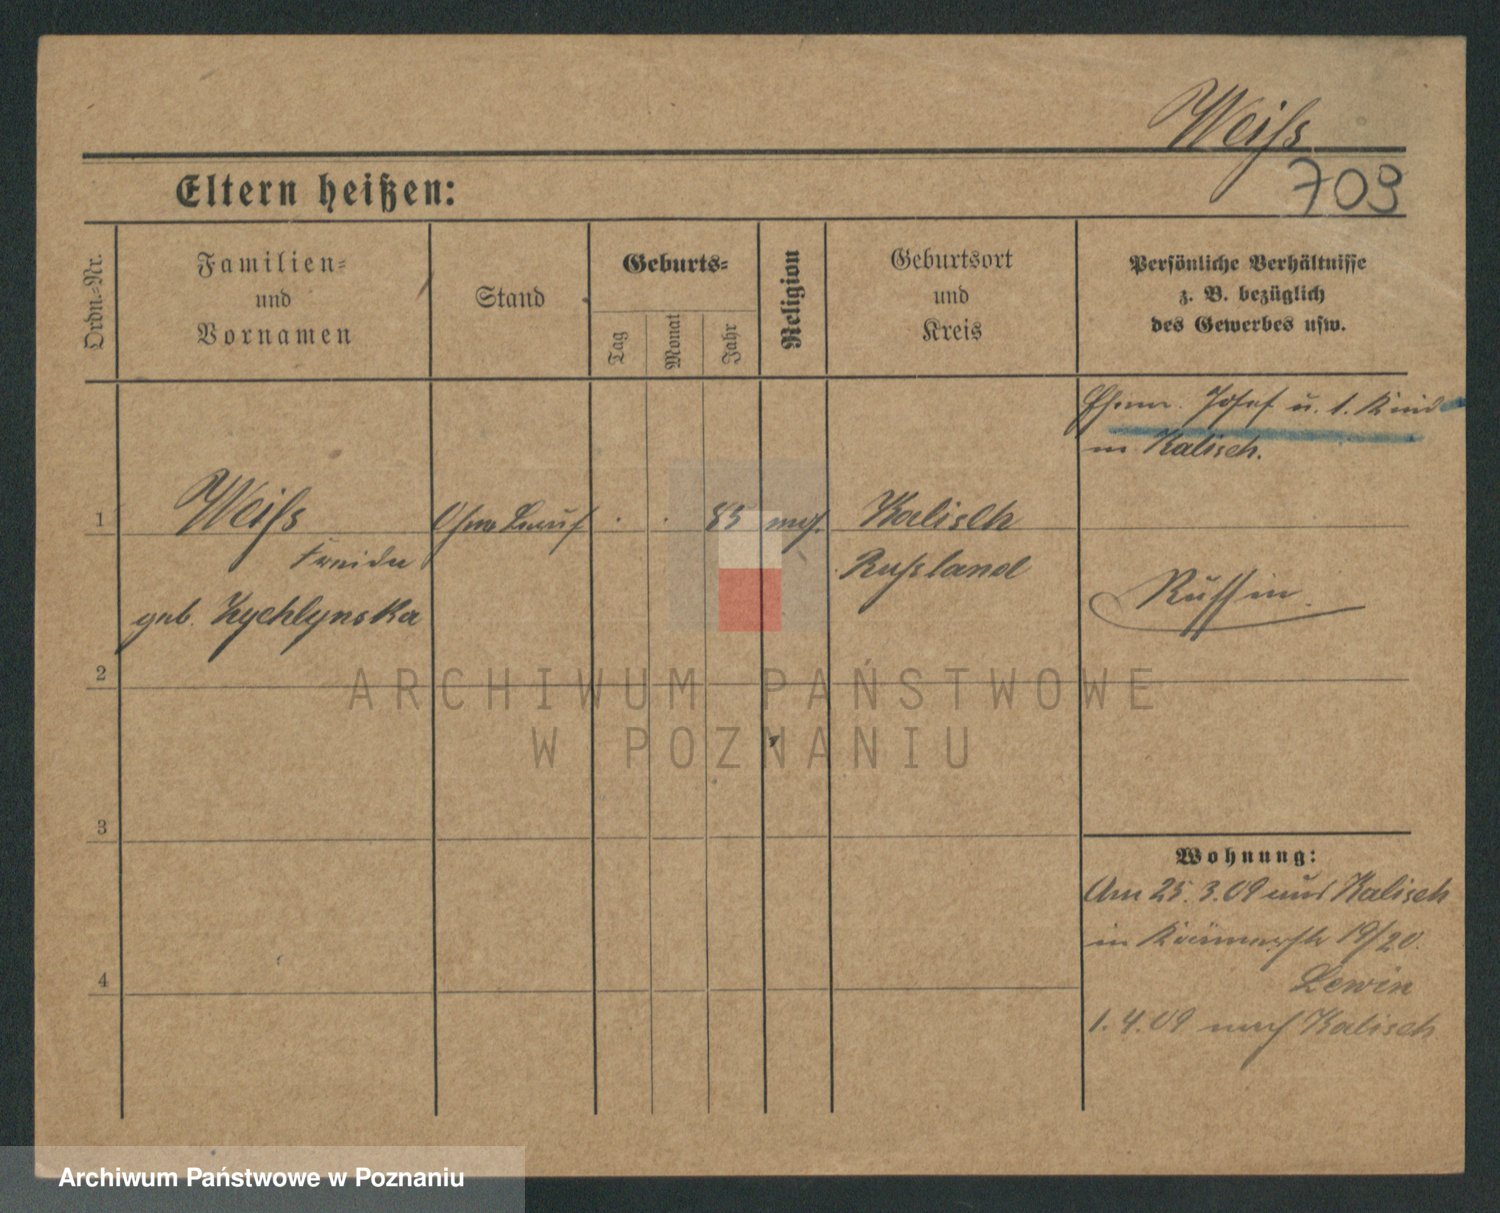 Weiß
709
Eltern heißen:
Ordn.-Nr.
Familien-
und
Vornamen
Stand
Geburts-
Tag
Monat
Jahr
Religion
Geburtsort
und
Kreis
Persönliche Verhältnisse
z. B. bezüglich
des Gewerbes usw.
Ehem. Josef u. 1. Kind
in Kalisch.
1
Weiß
Ohne Beruf
83
mos.
Kalisch
Freida
Russland
geb. Zychlynska
Russin
2
ARCHIWUM PAŃSTWOWE
W POZNANIU
3
Wohnung:
Am 25.3.09 aus Kalisch
in Krämerstr 19/20.
Lewin
4
1.4.09 nach Kalisch
Archiwum Państwowe w Poznaniu